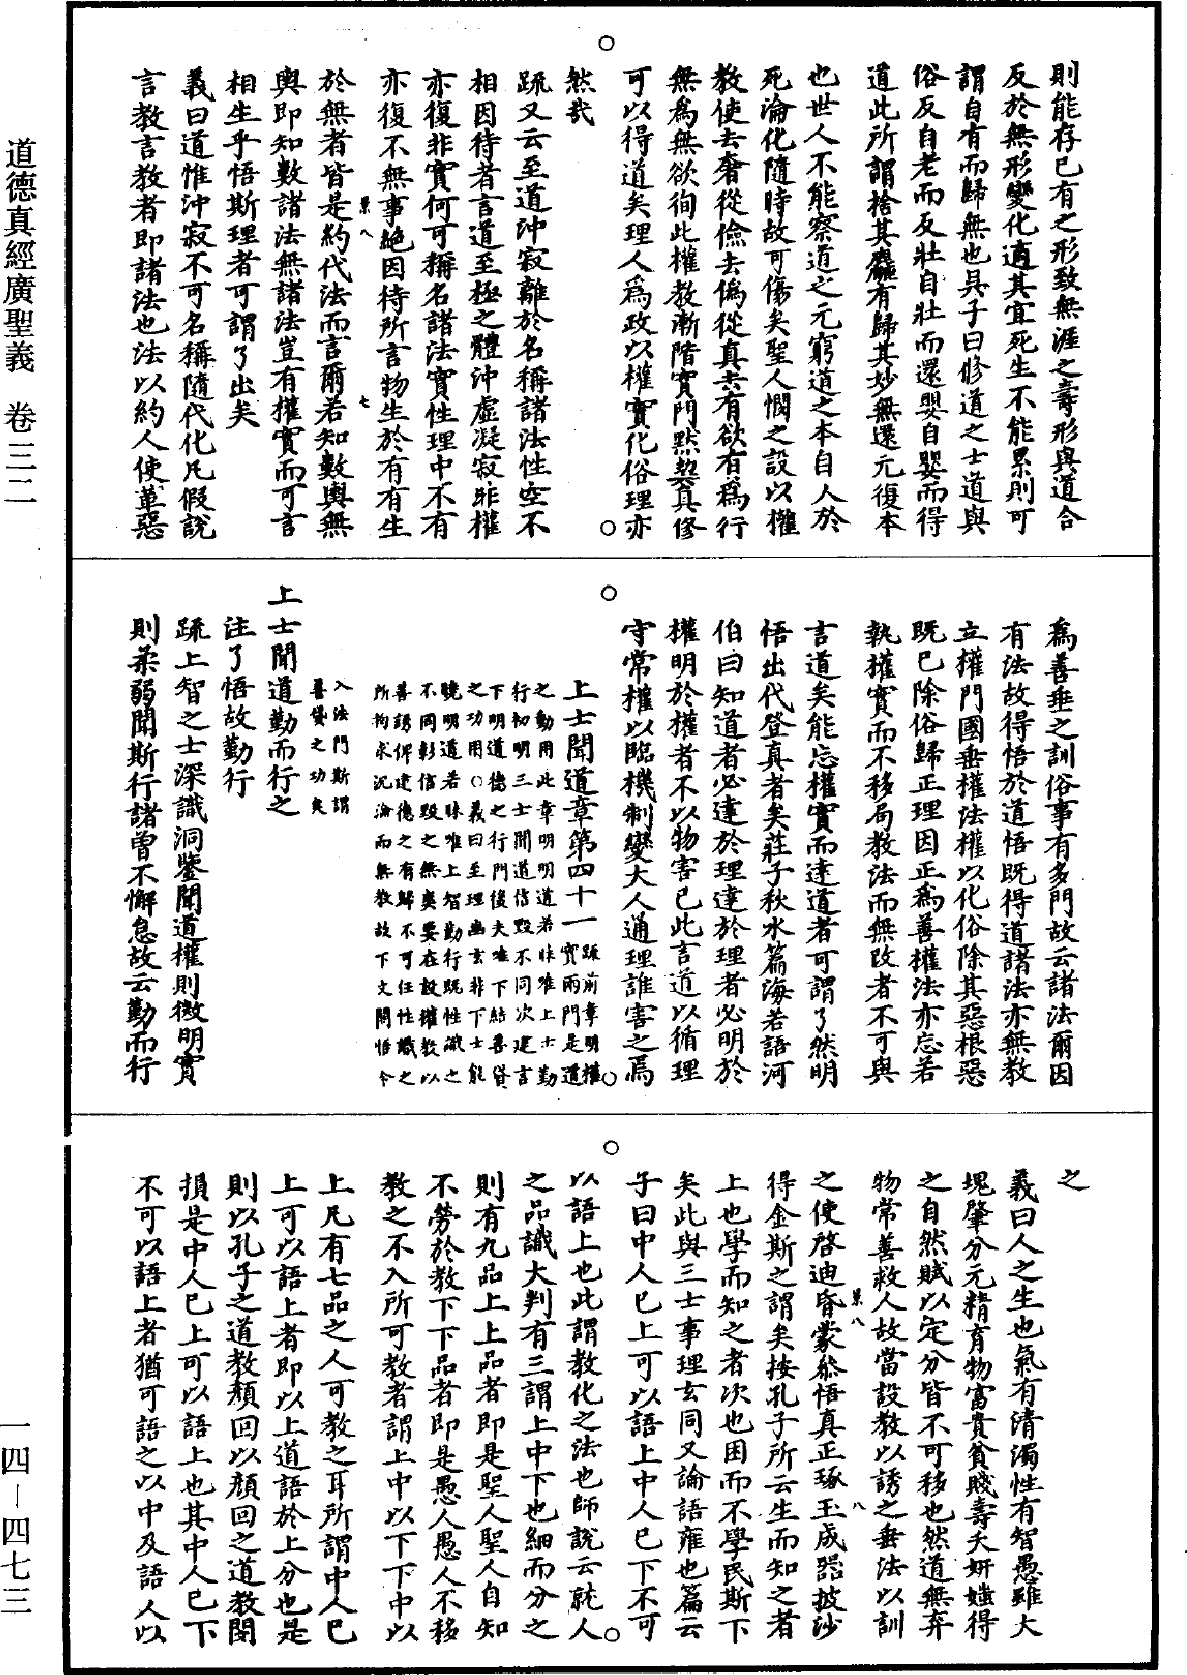 道德真經廣聖義　卷三二
則能存已有之形致無涯之壽形與道合
反於無形變化適其宜死生不能累則可
謂自有而歸無也具子曰修道之士道與
俗反自老而反壯自壯而還嬰自嬰而得
道此所謂捨其麤有歸其妙無還元復本
也世人不能察道之元窮道之本自人於
死淪化隨時故可傷矣聖人憫之設以權
教使去奢從儉去偽從真去有欲有為行
無為無欲徇此權教漸階實門默契真修
可以得道矣理人為政以權實化俗理亦
然哉
疏又云至道沖寂離於名稱諸法性空不
相因待者言道至極之體沖虛凝寂非權
亦復非實何可稱名諸法實性理中不有
亦復不無事絕因待所言物生於有有生
景八　七
於無者皆是約代法而言爾若知數輿無
輿即知數諸法無諸法豈有權實而可言
相生乎悟斯理者可謂了出矣
義曰道惟沖寂不可名稱隨代化凡假說
言教言教者即諸法也法以約人使革惡
為善垂之訓俗事有多門故云諸法爾因
有法故得悟於道悟既得道諸法亦無教
立權門國垂權法權以化俗除其惡根惡
既已除俗歸正理因正為善權法亦忘若
執權實而不移局教法而無改者不可與
言道矣能忘權實而達道者可謂了然明
悟出代登真者矣莊子秋水篇海若語河
伯曰知道者必達於理達於理者必明於
權明於權者不以物害已此言道以循理
守常權以臨機制變大人通理誰害之焉
上士聞道章第四十一
疏前章明權
實兩門是道
之動用此章明明道若昧唯上士勤
行初明三士聞道信毀不同次建言
下明道德之行門後夫唯下結善貸
之功用○義曰至理幽玄非下士能
曉明道若昧唯上智勤行既性識之
不同彰信毀之無爽要在設權教以
善誘俾建德之有歸不可任性識之
所拘求沉淪而無教故下文開悟令
入法門斯謂
善貸之功矣
上士聞道勤而行之
注了悟故勤行
疏上智之士深識洞鑒聞道權則微明實
則柔弱聞斯行諸曾不懈怠故云勤而行
之
義曰人之生也氣有清濁性有智愚雖大
塊肇分元精育物富貴貧賤壽夭妍媸得
之自然賦以定分皆不可移也然道無弃
物常善救人故當設教以誘之垂法以訓
之使啓迪昏蒙叅悟真正琢玉成器披沙
景八　八
得金斯之謂矣按孔子所云生而知之者
上也學而知之者次也困而不學民斯下
矣此與三士事理玄同又論語雍也篇云
子曰中人已上可以語上中人已下不可
以語上也此謂教化之法也師說云就人
之品識大判有三謂上中下也細而分之
則有九品上上品者即是聖人聖人自知
不勞於教下下品者即是愚人愚人不移
教之不入所可教者謂上中以下下中以
上凡有七品之人可教之耳所謂中人已
上可以語上者即以上道語於上分也是
則以孔子之道教顏回以顏回之道教閔
損是中人已上可以語上也其中人已下
不可以語上者猶可語之以中及語人以
一四—四七三